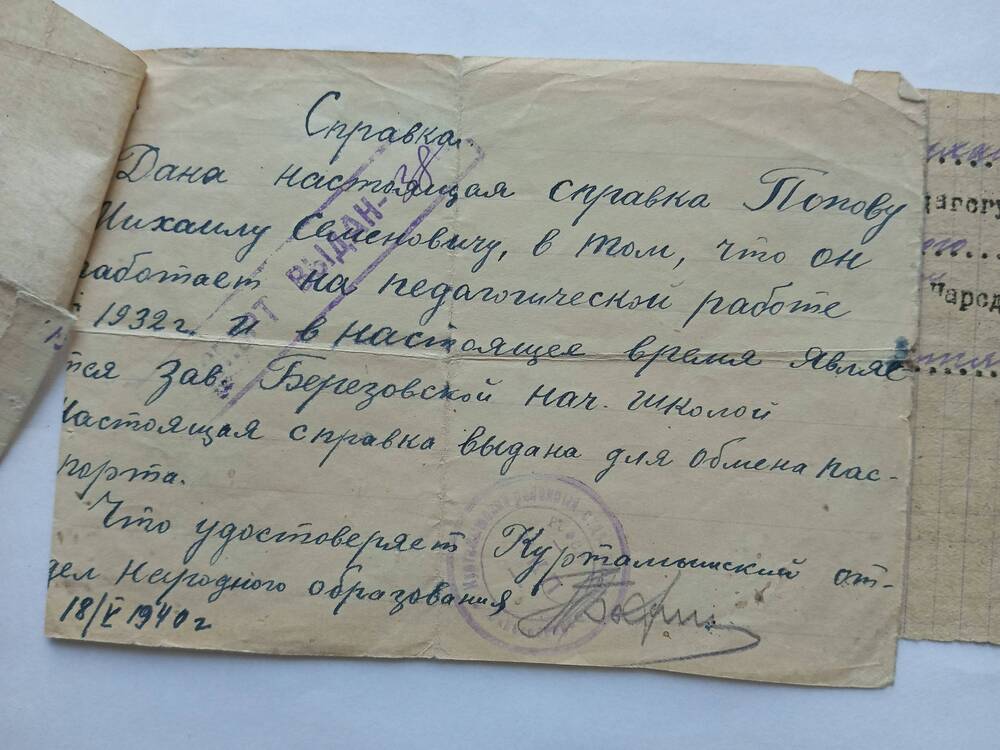 Справка
Дана настоящая справка Попову
Михаилу Семеновичу, в том, что он
работает на педагогической работе
1932 г. и в настоящее время являе
тся зав. Березовской нач. школой
Настоящая справка выдана для обмена пас-
порта.
Что удостоверяет Куртамышский от-
дел народного образования
18/V 1940 г
ВЫДАН-38